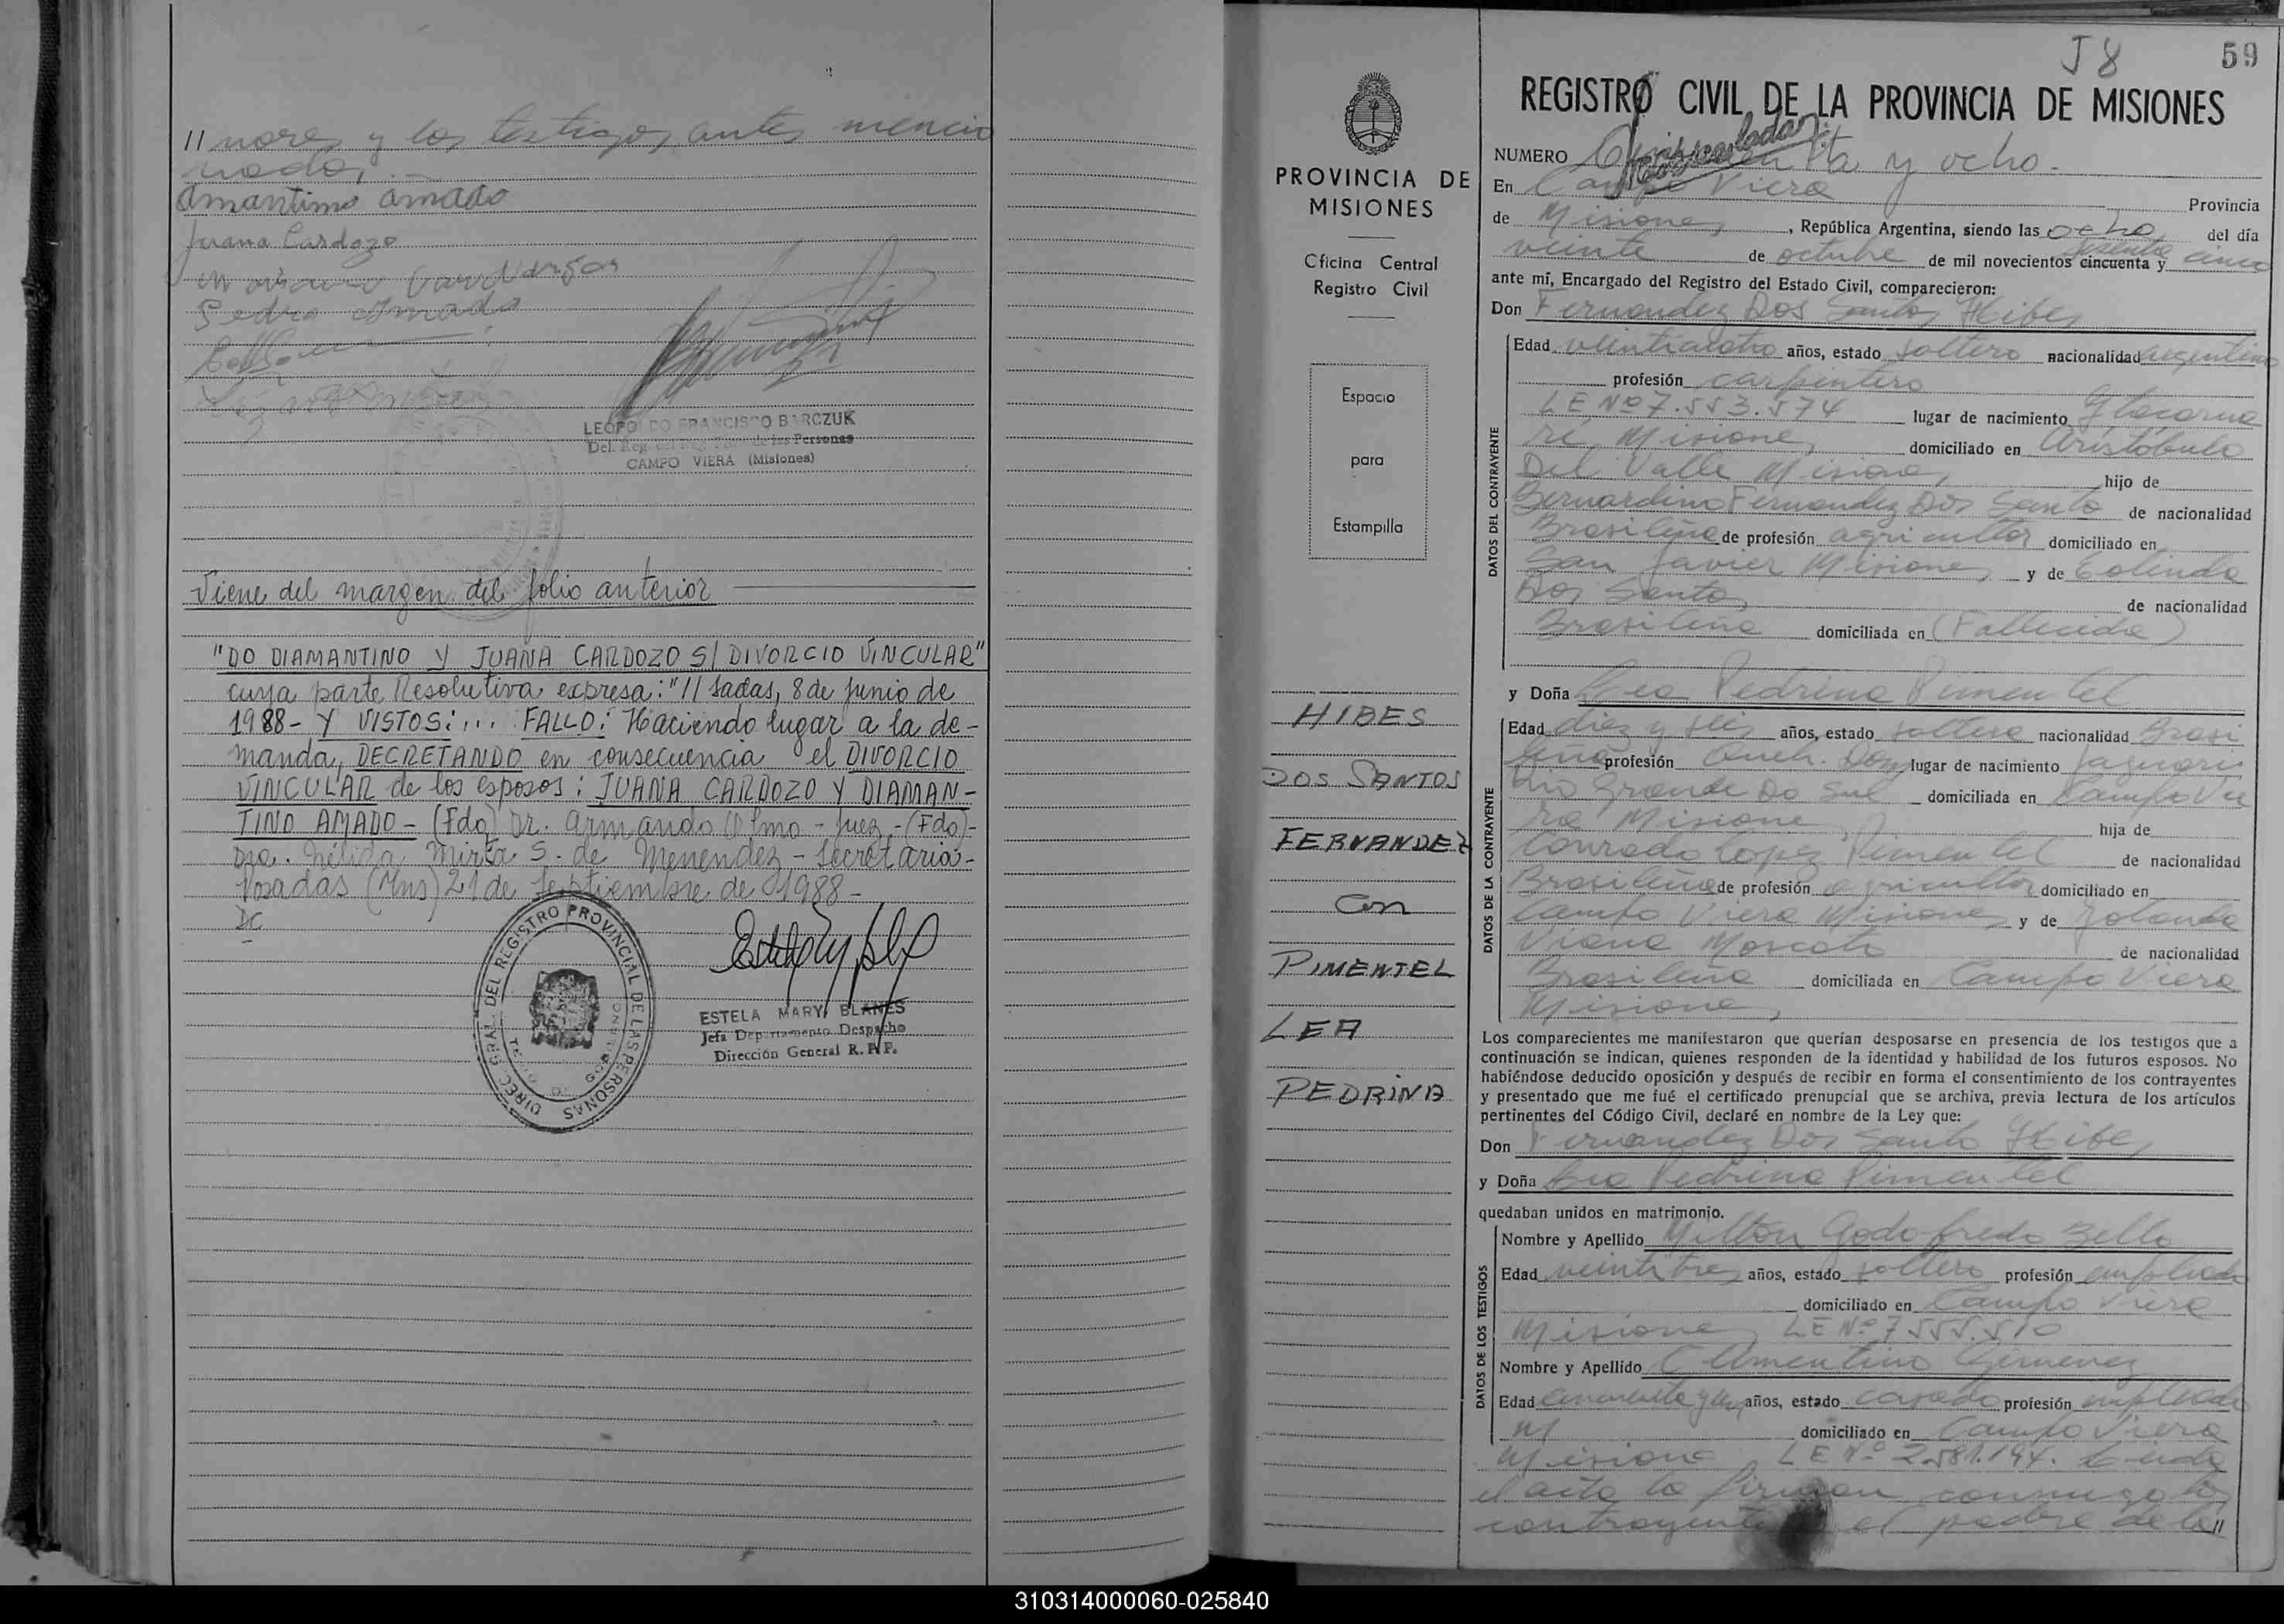 // nores y los testigos antes mencio
nados.
Amantimo amado
Juana Cardozo
Vargas
Pedro Amado
LEOPOLDO FRANCISCO BARCZUK
Del. Reg. de las Personas
CAMPO VIERA (Misiones)
Viene del margen del folio anterior
"DO DIAMANTINO Y JUANA CARDOZO S/ DIVORCIO VINCULAR"
cuya parte Resolutiva expresa: "// sadas, 8 de junio de
1988 - Y VISTOS: ... FALLO: Haciendo lugar a la de-
manda, DECRETANDO en consecuencia el DIVORCIO
VINCULAR de los esposos: JUANA CARDOZO Y DIAMAN-
TINO AMADO - (Fdo) Dr. Armando - Juez - (Fdo) -
Dra. Nélida Mirta S. de Menendez - Secretaria -
Posadas (Mns) 21 de Septiembre de 1988 -
DC
DIREC. GRAL. DEL REGISTRO PROVINCIAL DE LAS PERSONAS
ESTELA MARY BLANES
Jefa Departamento Despacho
Dirección General R. P. P.
PROVINCIA DE
MISIONES
Oficina Central
Registro Civil
Espacio
para
Estampilla
HIBES
DOS SANTOS
FERNANDEZ
Con
PIMENTEL
LEA
PEDRINA
58
59
REGISTRO CIVIL DE LA PROVINCIA DE MISIONES
NUMERO Cincuenta y ocho.
En Campo Viera Provincia
de Misiones, República Argentina, siendo las ocho del día
veinte de octubre de mil novecientos cincuenta y sesenta cinco
ante mí, Encargado del Registro del Estado Civil, comparecieron:
Don Fernandez Dos Santos Hibes
DATOS DEL CONTRAYENTE
Edad veinticuatro años, estado soltero nacionalidad argentino
profesión carpintero
LE Nº 7.553.574 lugar de nacimiento
Misiones domiciliado en Aristóbulo
Del Valle Misiones hijo de
Bernardino Fernandez Dos Santo de nacionalidad
Brasileña de profesión agricultor domiciliado en
San Javier Misiones y de
Dos Santos de nacionalidad
Brasileña domiciliada en (Fallecida)
y Doña Lea Pedrina Pimentel
DATOS DE LA CONTRAYENTE
Edad diez y seis años, estado soltera nacionalidad Brasi
leña profesión lugar de nacimiento Jaguari
Rio Grande Do Sul domiciliada en Campo Vie
ra Misiones hija de
Conrado Lopez Pimentel de nacionalidad
Brasileña de profesión agricultor domiciliado en
Campo Viera Misiones y de
Viana de nacionalidad
Brasileña domiciliada en Campo Viera
Misiones
Los comparecientes me manifestaron que querían desposarse en presencia de los testigos que a
continuación se indican, quienes responden de la identidad y habilidad de los futuros esposos. No
habiéndose deducido oposición y después de recibir en forma el consentimiento de los contrayentes
y presentado que me fué el certificado prenupcial que se archiva, previa lectura de los artículos
pertinentes del Código Civil, declaré en nombre de la Ley que:
Don Fernandez Dos Santo Hibes
y Doña Lea Pedrina Pimentel
quedaban unidos en matrimonio.
DATOS DE LOS TESTIGOS
Nombre y Apellido Milton Godofredo Bello
Edad veintitres años, estado soltero profesión empleado
domiciliado en Campo Viera
Misiones LE Nº 7.555.510
Nombre y Apellido Clementino Gimenez
Edad años, estado casado profesión empleado
domiciliado en Campo Viera
Misiones LE Nº 2.581.194. Leida
el acta la firman conmigo los
contrayentes el padre de la //
310314000060-025840